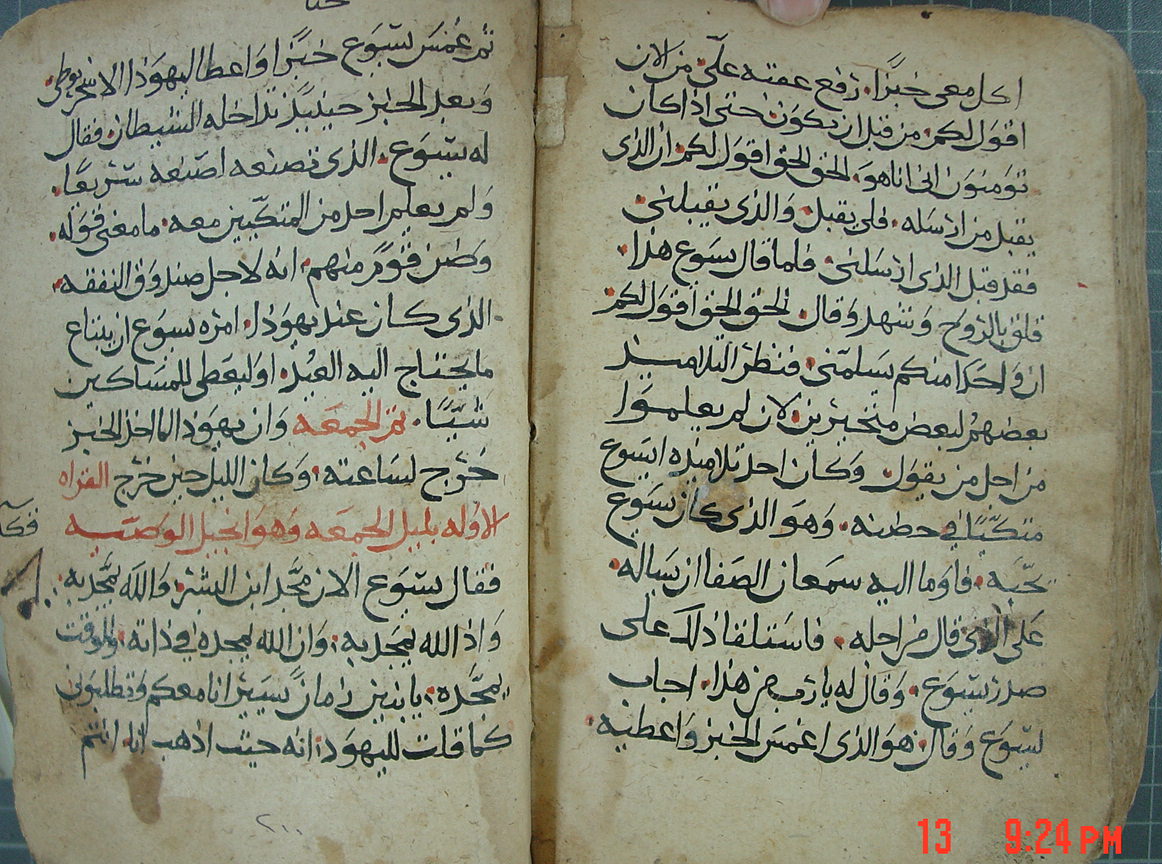 اكل معي خبزًا. رفع عقبه علىّ. من الان
اقول لكم. من قبل ان يكون. حتى اذا كان
تومنون اني انا هو. الحق الحق اقول لكم. ان الذي
يقبل من ارسله. فلي يقبل. والذي يقبلني.
فقد قبل الذي ارسلني. فلما قال يسوع هذا.
قلق بالروح وشهد وقال. الحق الحق اقول لكم.
ان واحدًا منكم يسلمني. فنظر التلاميذ
بعضهم لبعض متحيرين. لان لم يعلموا
من اجل من يقول. وكان احد تلاميذه ايسوع
متكئًا في حضنه. وهو الذي كان يسوع
يحبه. فاوما اليه سمعان الصفا ان يساله.
على الذي قال من اجله. فاستلقا ذلك على
صدر يسوع. وقال له يا رب من هذا. اجاب
يسوع وقال. هو الذي اغمس الخبز واعطيه.
ثم غمس يسوع خبزًا واعطا ليهوذا الاسخريوطي.
وبعد الخبز حينيذ تداخله الشيطان. فقال
له يسوع. الذي تصنعه اصنعه سريعًا.
ولم يعلم احد من المتكيين معه. ما معنى قوله.
وظن قوم منهم. انه لاجل صندوق النفقه.
الذي كان عند يهوذا. امره يسوع ان يبتاع
ما يحتاج اليه العيد. او ليعطي للمساكين
شيًا. تم الجمعه وان يهوذا لما اخذ الخبز
خرج لساعته. وكان الليل حين خرج القراه
الاوله بليل الجمعه وهو انجيل الوصيه
فقال يسوع الان مجد ابن البشر. والله يمجد به
واذ الله يمجد به. وان الله يمجده في ذاته. وللوقت
يمجده. يا بنين زمانًا يسير انا معكم وتطلبوني
كما قلت لليهود. انه حيث اذهب انا انتم
٢٠٠
13 9:24 PM